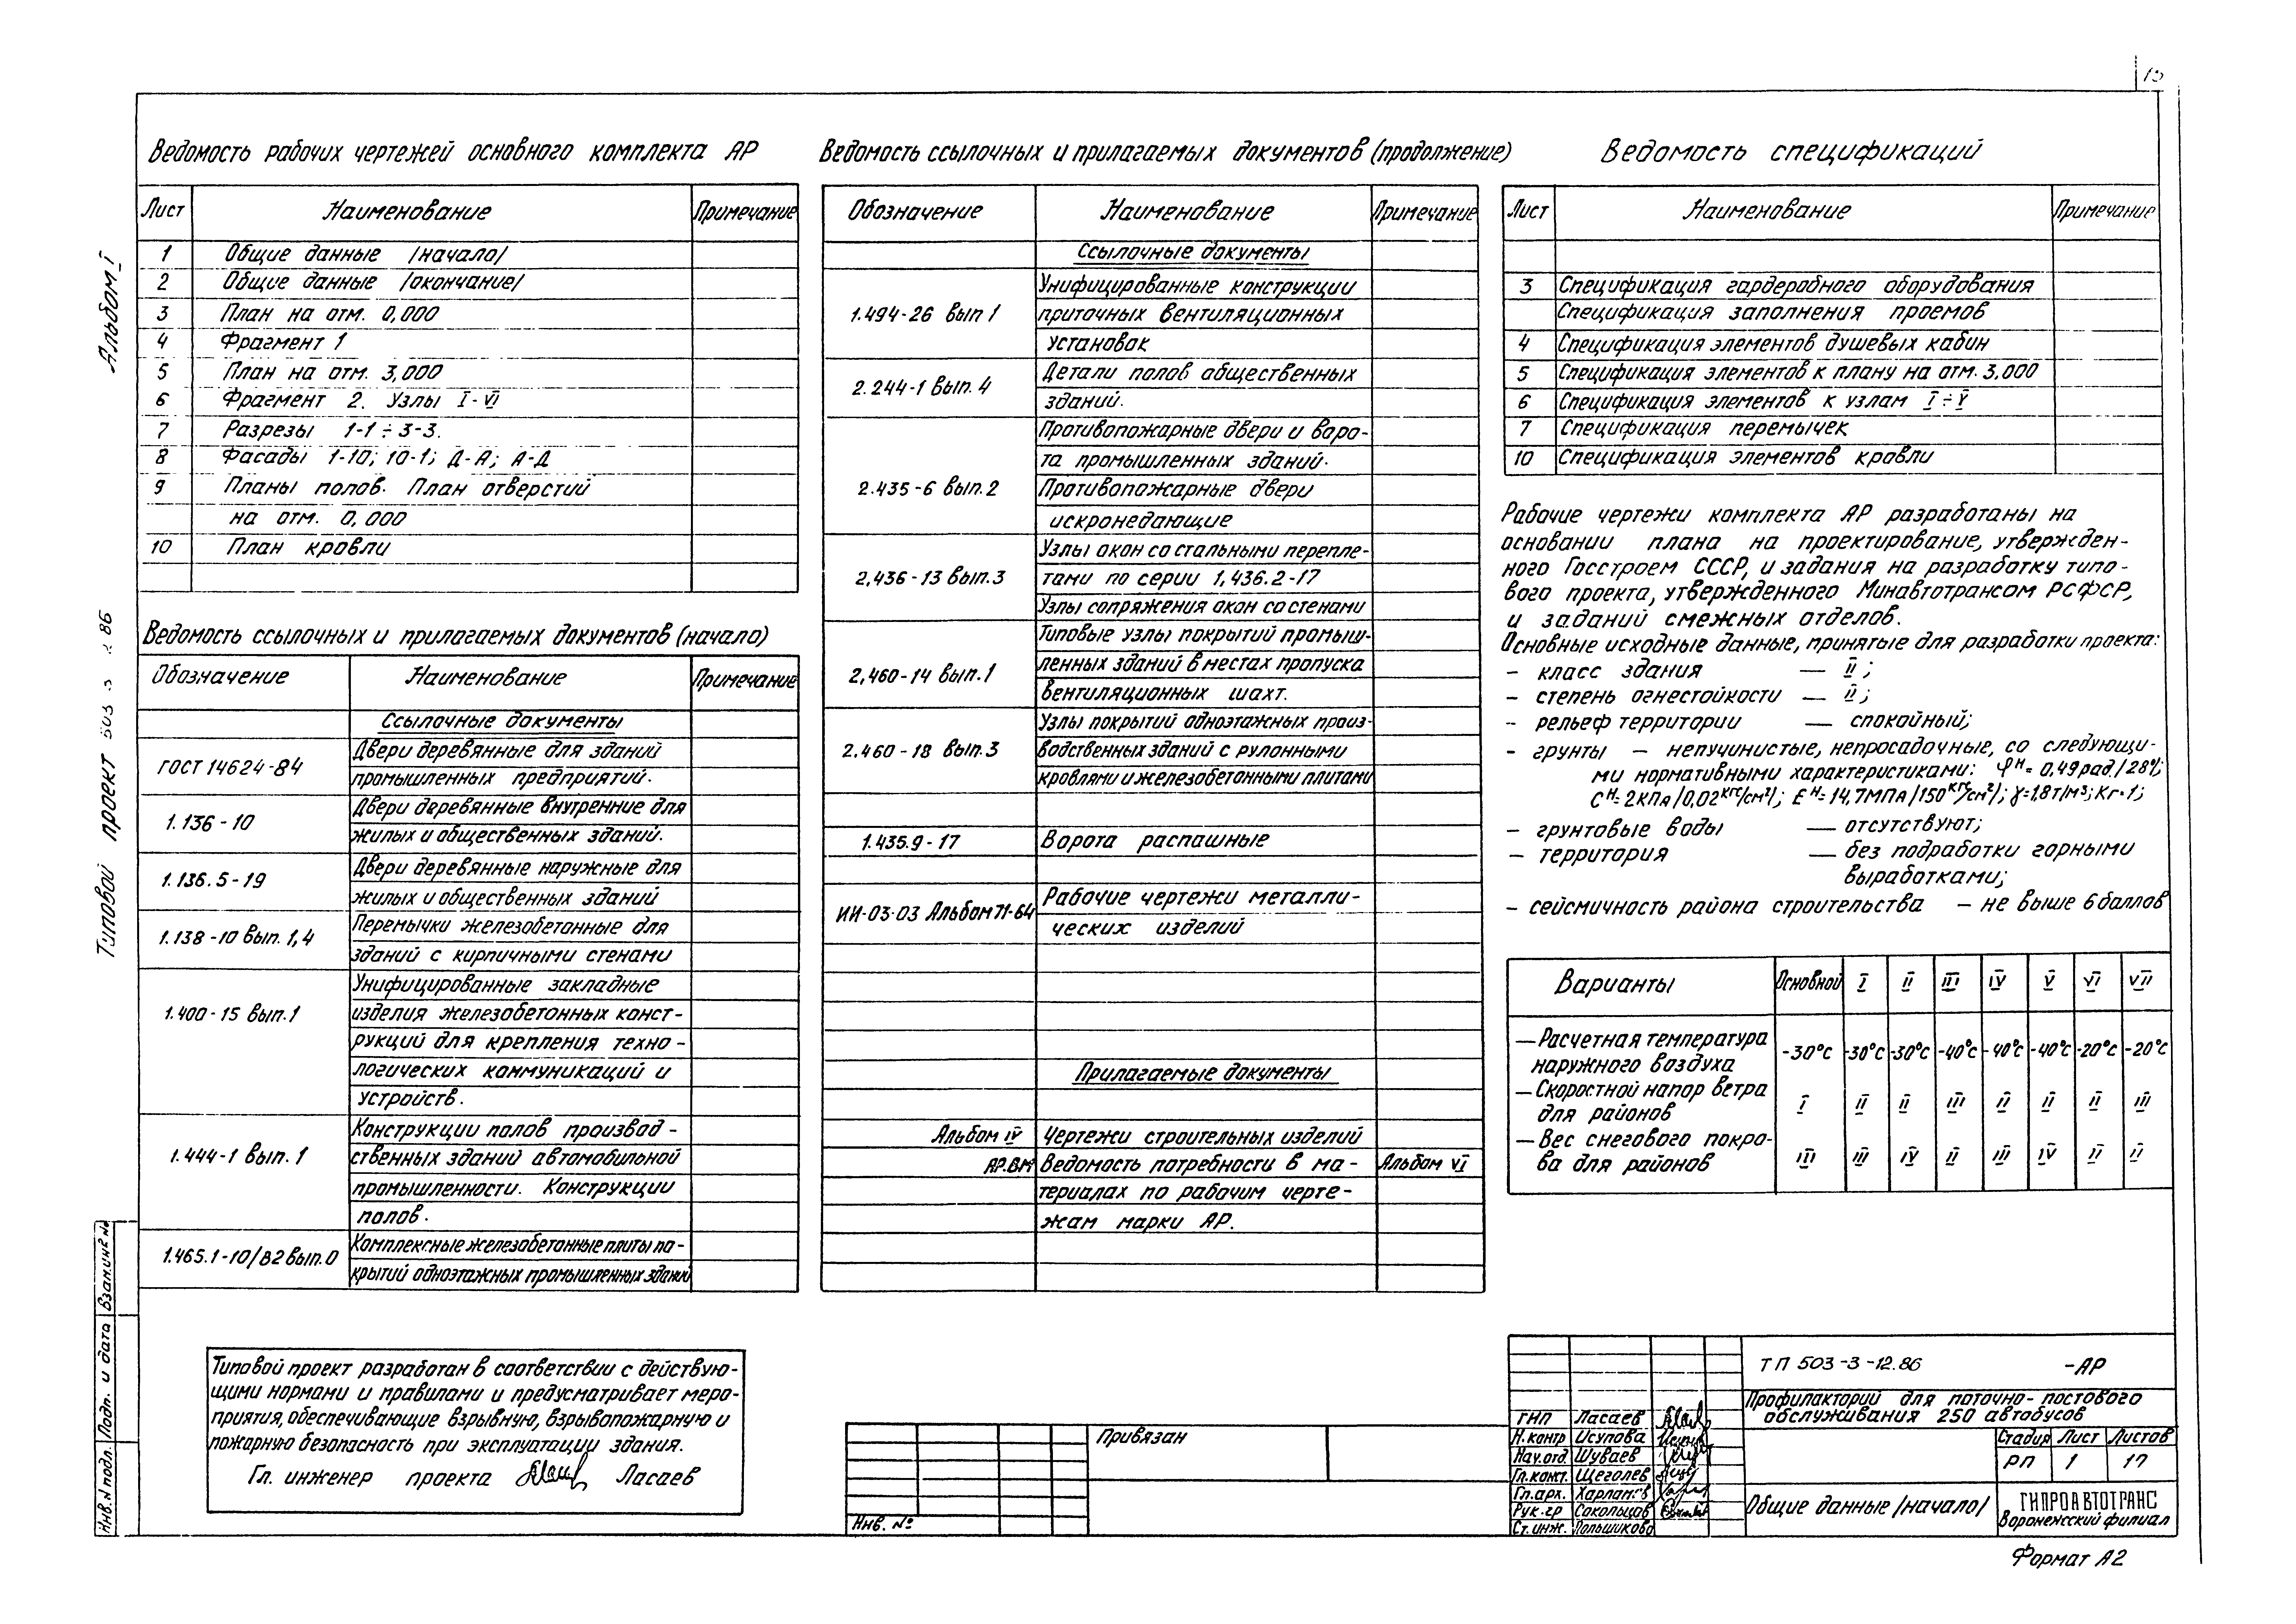 Альбом I
Типовой проект 503
Ведомость рабочих чертежей основного комплекта АР
Лист Наименование Примечание
1 Общие данные /начало/
2 Общие данные /окончание/
3 План на отм. 0,000
4 Фрагмент 1
5 План на отм. 3,000
6 Фрагмент 2. Узлы I-VI
7 Разрезы 1-1÷3-3.
8 Фасады 1-10; 10-1; Д-А; А-Д
9 Планы полов. План отверстий
на отм. 0,000
10 План кровли
Ведомость ссылочных и прилагаемых документов (начало)
Обозначение Наименование Примечание
Ссылочные документы
ГОСТ 14624-84 Двери деревянные для зданий
промышленных предприятий.
1.136-10 Двери деревянные внутренние для
жилых и общественных зданий.
1.136.5-19 Двери деревянные наружные для
жилых и общественных зданий
1.138-10 вып. 1,4 Перемычки железобетонные для
зданий с кирпичными стенами
1.400-15 вып.1 Унифицированные закладные
изделия железобетонных конст-
рукций для крепления техно-
логических коммуникаций и
устройств.
1.444-1 вып. 1 Конструкции полов производ-
ственных зданий автомобильной
промышленности. Конструкции
полов.
1.465.1-10/82 вып.0 Комплексные железобетонные плиты по-
крытий одноэтажных промышленных зданий
Типовой проект разработан в соответствии с действую-
щими нормами и правилами и предусматривает меро-
приятия, обеспечивающие взрывную, взрывопожарную и
пожарную безопасность при эксплуатации здания.
Гл. инженер проекта Ласаев
Ведомость ссылочных и прилагаемых документов (продолжение)
Обозначение Наименование Примечание
Ссылочные документы
1.494-26 вып 1 Унифицированные конструкции
приточных вентиляционных
установок
2.244-1 вып. 4 Детали полов общественных
зданий.
2.435-6 вып.2 Противопожарные двери и воро-
та промышленных зданий.
Противопожарные двери
искронедающие
2,436-13 вып.3 Узлы окон со стальными перепле-
тами по серии 1,436.2-17
Узлы сопряжения окон со стенами
2,460-14 вып.1 Типовые узлы покрытий промыш-
ленных зданий в местах пропуска
вентиляционных шахт.
2.460-18 вып.3 Узлы покрытий одноэтажных произ-
водственных зданий с рулонными
кровлями и железобетонными плитами
1.435.9-17 Ворота распашные
ИИ-03-03 Альбом 71-64 Рабочие чертежи металли-
ческих изделий
Прилагаемые документы
Альбом IV Чертежи строительных изделий
АР.ВМ Ведомость потребности в ма- Альбом VI
териалах по рабочим черте-
жам марки АР.
Привязан
Инв. №
Ведомость спецификаций
Лист Наименование Примечание
3 Спецификация гардеробного оборудования
Спецификация заполнения проемов
4 Спецификация элементов душевых кабин
5 Спецификация элементов к плану на отм. 3,000
6 Спецификация элементов к узлам I÷V
7 Спецификация перемычек
10 Спецификация элементов кровли
Рабочие чертежи комплекта АР разработаны на
основании плана на проектирование, утвержден-
ного Госстроем СССР, и задания на разработку типо-
вого проекта, утвержденного Минавтотрансом РСФСР,
и заданий смежных отделов.
Основные исходные данные, принятые для разработки проекта:
- класс здания — II;
- степень огнестойкости — II;
- рельеф территории — спокойный;
- грунты — непучинистые, непросадочные, со следующи-
ми нормативными характеристиками: φн= 0,49рад./28°/;
Сн=2КПа/0,02кгс/см²/; Ен=14,7МПа/150кгс/см²/; γ=1,8т/м³; Кг=1;
- грунтовые воды — отсутствуют;
- территория — без подработки горными
выработками;
- сейсмичность района строительства — не выше 6 баллов
Варианты Основной I II III IV V VI VII
— Расчетная температура
наружного воздуха -30°с -30°с -30°с -40°с -40°с -40°с -20°с -20°с
— Скоростной напор ветра
для районов I II II III II II II III
— Вес снегового покро-
ва для районов III III IV II III IV II II
ТП 503-3-12.86 -АР
Профилакторий для поточно-постового
обслуживания 250 автобусов
ГИП Ласаев
Н.контр Исупова
Нач.отд. Шуваев
Гл.конст. Щеголев
Гл.арх. Харламов
Рук.гр Сокольцов
Ст.инж. Польшикова
Стадия Лист Листов
РП 1 17
Общие данные /начало/
ГИПРОАВТОТРАНС
Воронежский филиал
Формат А2
Инв.N подл. Подп. и дата Взам.инв N